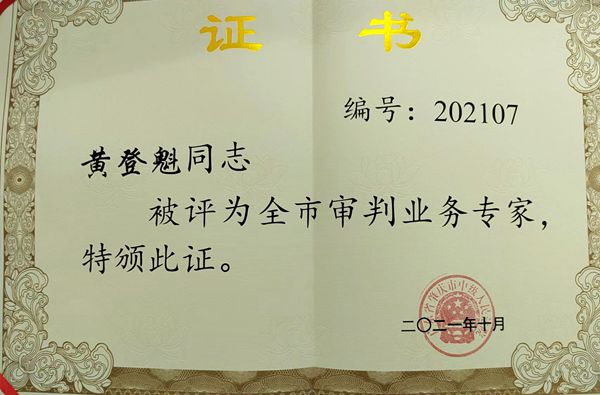 证 书
编号：202107
黄登魁同志
被评为全市审判业务专家，
特颁此证。
省肇庆市中级人民
二〇二一年十月